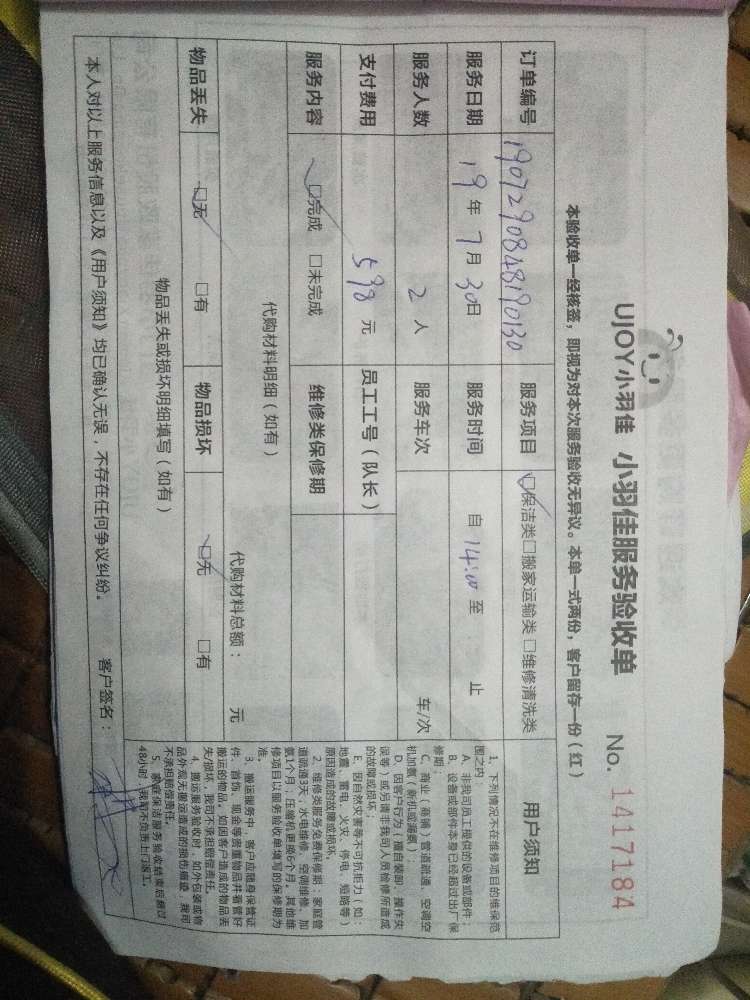 UJOY小羽佳 小羽佳服务验收单 No. 1417184
本验收单一经核签，即视为对本次服务验收无异议。本单一式两份，客户留存一份（红）
订单编号 1907290848190130 服务项目 □保洁类□搬家运输类□维修清洗类
服务日期 19 年 7 月 30 日 服务时间 自 14:00 至 止
服务人数 2 人 服务车次 车/次
支付费用 598 元 员工工号（队长）
服务内容 □完成 □未完成 维修类保修期
代购材料明细（如有） 代购材料总额： 元
物品丢失 □无 □有 物品损坏 □无 □有
物品丢失或损坏明细填写（如有）
本人对以上服务信息以及《用户须知》均已确认无误，不存在任何争议纠纷。 客户签名：
用户须知
1、下列情况不在维修项目的维保范
围之内：
A、非我司员工提供的设备或部件；
B、设备或部件本身已经超过出厂保
修期；
C、商业（商铺）管道疏通、空调空
机加氨（新机或漏氨）；
D、因客户行为（擅自装卸、操作失
误等）或另请非我司人员检修所造成
的故障或损坏；
E、因自然灾害等不可抗拒力（如：
地震、雷电、火灾、停电、短路等）
原因造成的故障或损坏。
2、维修类服务免费保修期：家庭管
道疏通3天；水电维修、空调维修、加
氨1个月；压缩机更换6个月。其他维
修项目以服务验收单填写的保修期为
准。
3、搬运服务中，客户应随身保管证
件、首饰、现金等贵重物品并看管好
搬运的物品，如因客户造成的物品丢
失/损坏，我司不承担赔偿责任。
4、搬运服务验收时，如外包装或物
品外观无搬运造成的损伤痕迹，我司
不承担赔偿责任。
5、家庭保洁服务验收结束后超过
48小时，我司不负责上门返工。